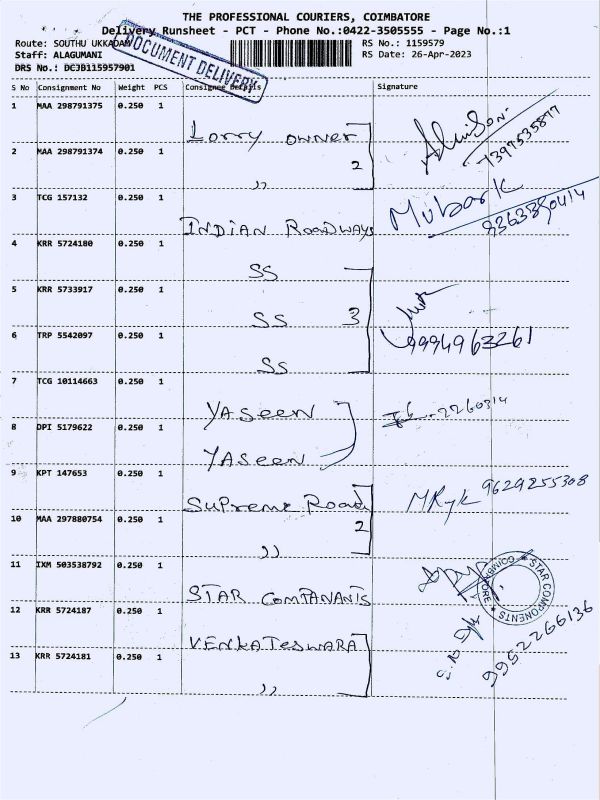 THE PROFESSIONAL COURIERS, COIMBATORE
Delivery Runsheet - PCT - Phone No.:0422-3505555 - Page No.:1
Route: SOUTHU UKKADAM
RS No.: 1159579
Staff: ALAGUMANI
RS Date: 26-Apr-2023
DRS No.: DCJB115957901
DOCUMENT DELIVERY
S No Consignment No Weight PCS Consignee Details Signature
1 MAA 298791375 0.250 1
Lorry owner
7397535877
2 MAA 298791374 0.250 1
2
,,
3 TCG 157132 0.250 1
INDIAN ROADWAYS
Mubarak
9363890414
4 KRR 5724180 0.250 1
SS
5 KRR 5733917 0.250 1
SS 3
9994963261
6 TRP 5542097 0.250 1
SS
7 TCG 10114663 0.250 1
YASeen
2260314
8 DPI 5179622 0.250 1
YASeen
9 KPT 147653 0.250 1
SuPreme Road
9629255308
10 MAA 297880754 0.250 1
2
,,
11 IXM 503538792 0.250 1
STAR COMPANANTS
STAR COMPONENTS
COIMBATORE
12 KRR 5724187 0.250 1
VENKATESWARA
9952266136
13 KRR 5724181 0.250 1
,,